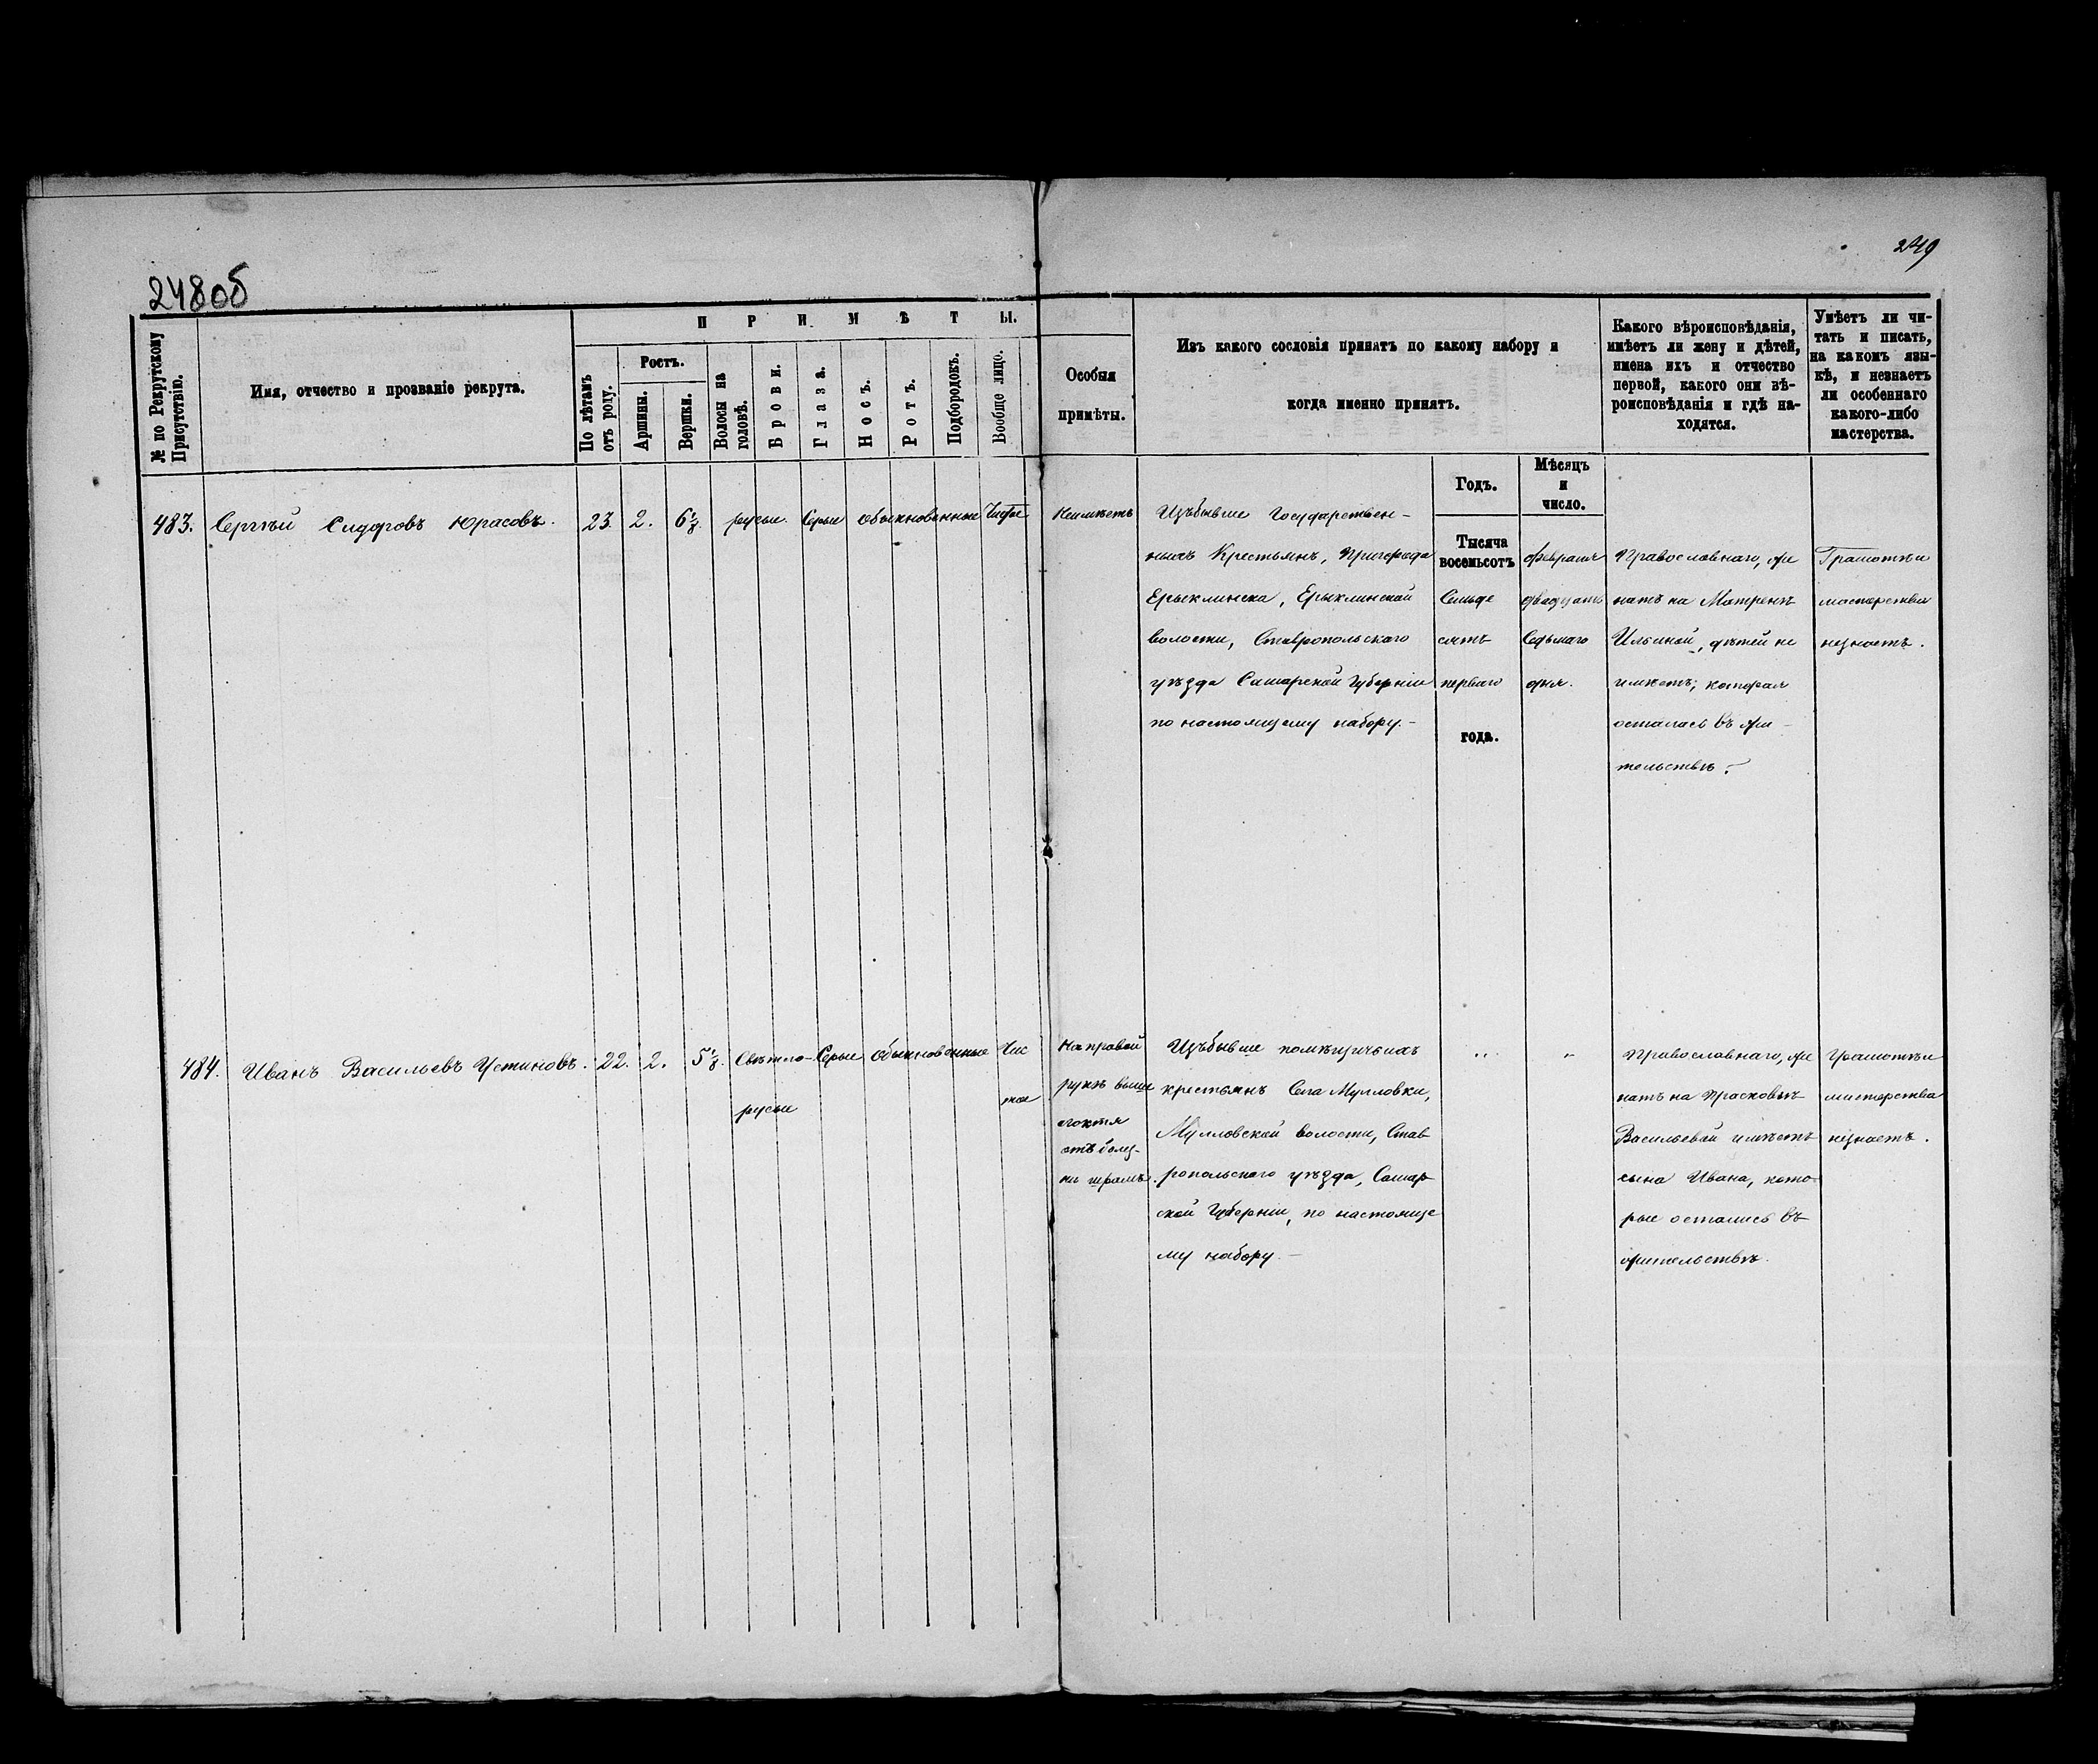 248об
249
№ по Рекрутскому Присутствію.
Имя, отчество и прозваніе рекрута.
ПРИМѢТЫ.
По лѣтамъ отъ роду.
Ростъ.
Аршины.
Вершки.
Волосы на головѣ.
Брови.
Глаза.
Носъ.
Ротъ.
Подбородокъ.
Вообще лицо.
Особыя
примѣты.
Изъ какого сословія принятъ по какому набору и
когда именно принятъ.
Какого вѣроисповѣданія,
имѣетъ ли жену и дѣтей,
имена ихъ и отчество
первой, какого они вѣ-
роисповѣданія и гдѣ на-
ходятся.
Умѣетъ ли чи-
тать и писать,
на какомъ язы-
кѣ, и незнаетъ
ли особеннаго
какого-либо
мастерства.
Годъ.
Мѣсяцъ
и
число.
483. Сергѣй Сидоровъ Юрасовъ. 23. 2. 6½. русые. Серые обыкновенные Чистое
Неимѣетъ
Изъбывше Государствен-
ныхъ Крестьянъ, Пригорода
Ерыклинска, Ерыклинской
волости, Ставропольскаго
уѣзда Самарской Губерніи
по настоящему набору.-
Тысяча
восемьсотъ
Семьде
сятъ
перваго
года.
февраля
двадцать
Седьмаго
дня.
Православнаго, же
натъ на Матренѣ
Ильиной, дѣтей не
имѣетъ, которая
осталась въ жи-
тельствѣ.-
Грамотѣ и
мастерства
незнаетъ.
484. Иванъ Васильевъ Устиновъ. 22. 2. 5½. Свѣтло- Серые обыкновенные Чис
русые
тое
На правой
рукѣ выше
локтя
отъ болѣз-
ни шрамъ.
Изъбывше помѣщичьихъ
крестьянъ Села Мулловки,
Мулловской волости, Став
ропольскаго уѣзда, Самар
ской Губерніи, по настояще
му набору.-
" "
Православнаго, же
натъ на Прасковьѣ
Васильевой имѣетъ
сына Ивана, кото-
рые остались въ
жительствѣ.
Грамотѣ и
мастерства
незнаетъ.